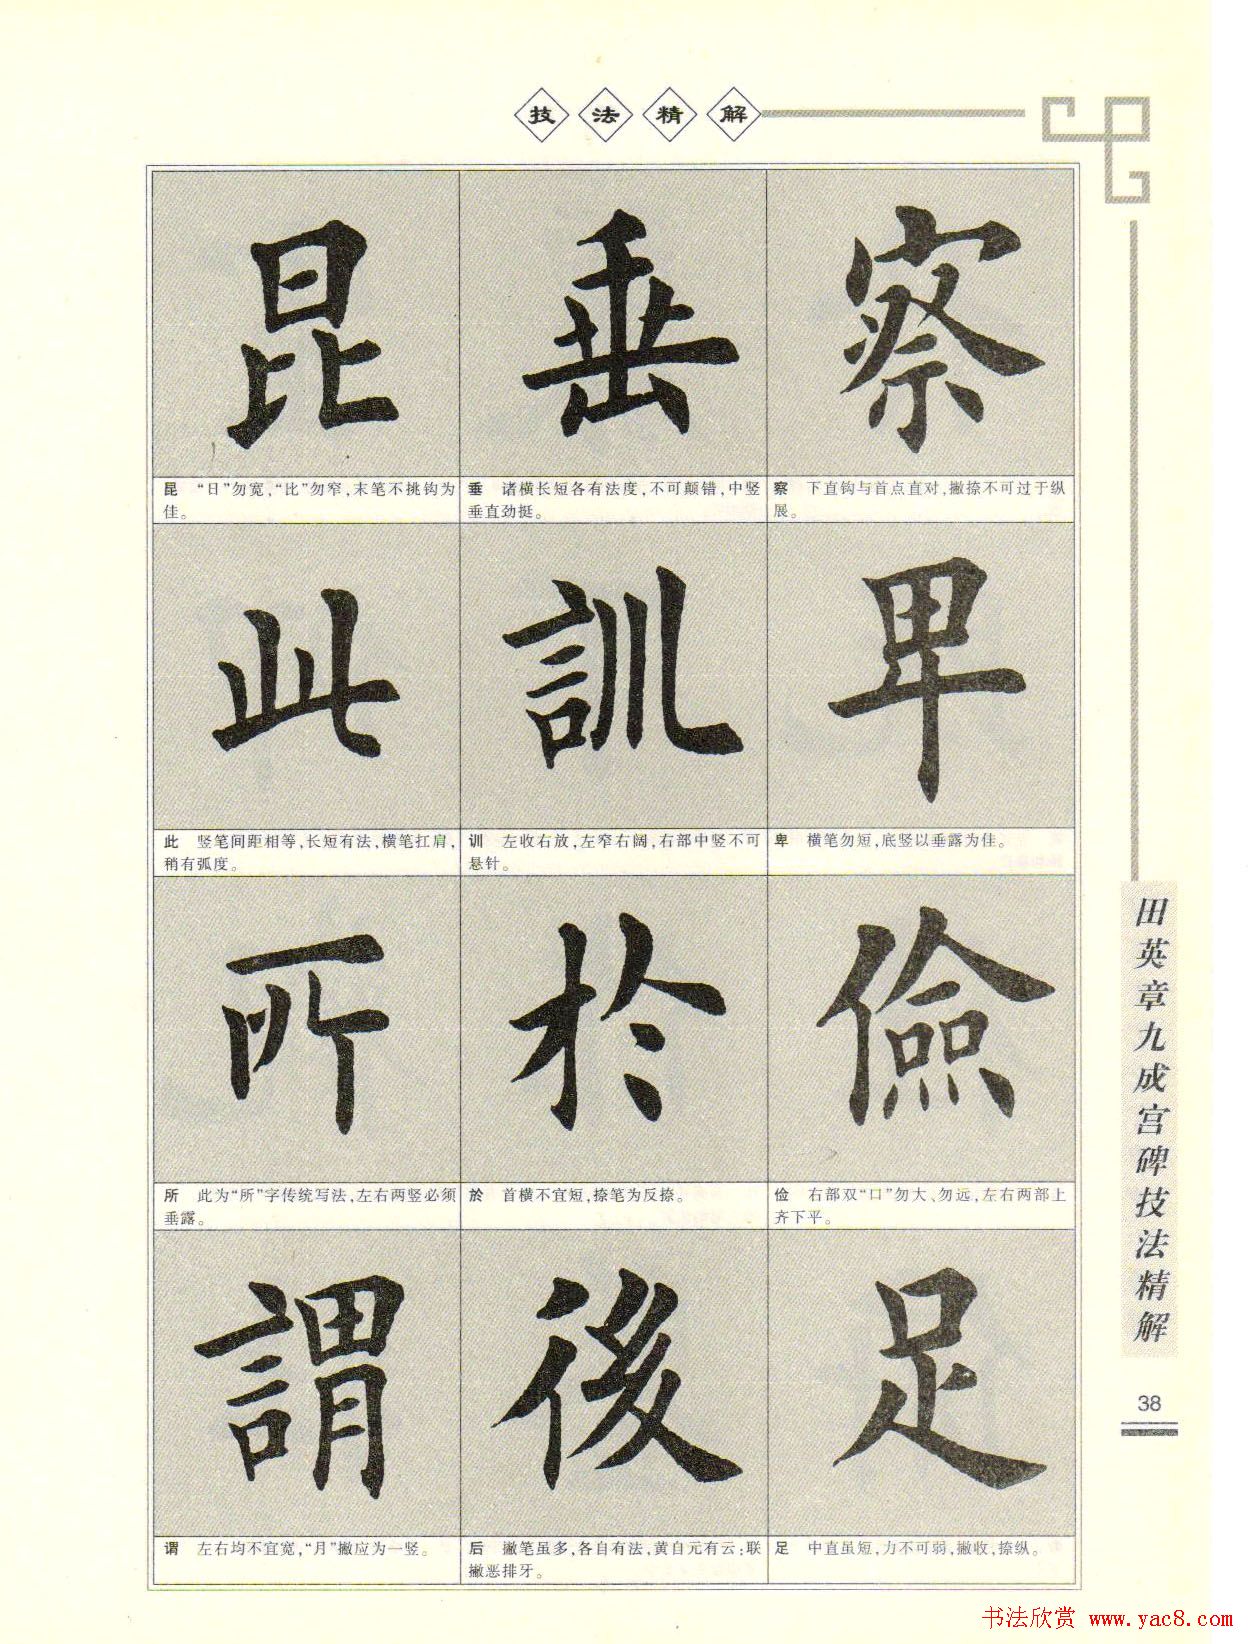 技法精解
昆 垂 察
昆 “日”勿宽，“比”勿窄，末笔不挑钩为
佳。
垂 诸横长短各有法度，不可颠错，中竖
垂直劲挺。
察 下直钩与首点直对，撇捺不可过于纵
展。
此 訓 卑
此 竖笔间距相等，长短有法，横笔扛肩，
稍有弧度。
训 左收右放，左窄右阔，右部中竖不可
悬针。
卑 横笔勿短，底竖以垂露为佳。
所 於 儉
所 此为“所”字传统写法，左右两竖必须
垂露。
於 首横不宜短，捺笔为反捺。
俭 右部双“口”勿大、勿远，左右两部上
齐下平。
謂 後 足
谓 左右均不宜宽，“月”撇应为一竖。
后 撇笔虽多，各自有法，黄自元有云：联
撇恶排牙。
足 中直虽短，力不可弱，撇收，捺纵。
田英章九成宫碑技法精解
38
书法欣赏 www.yac8.com